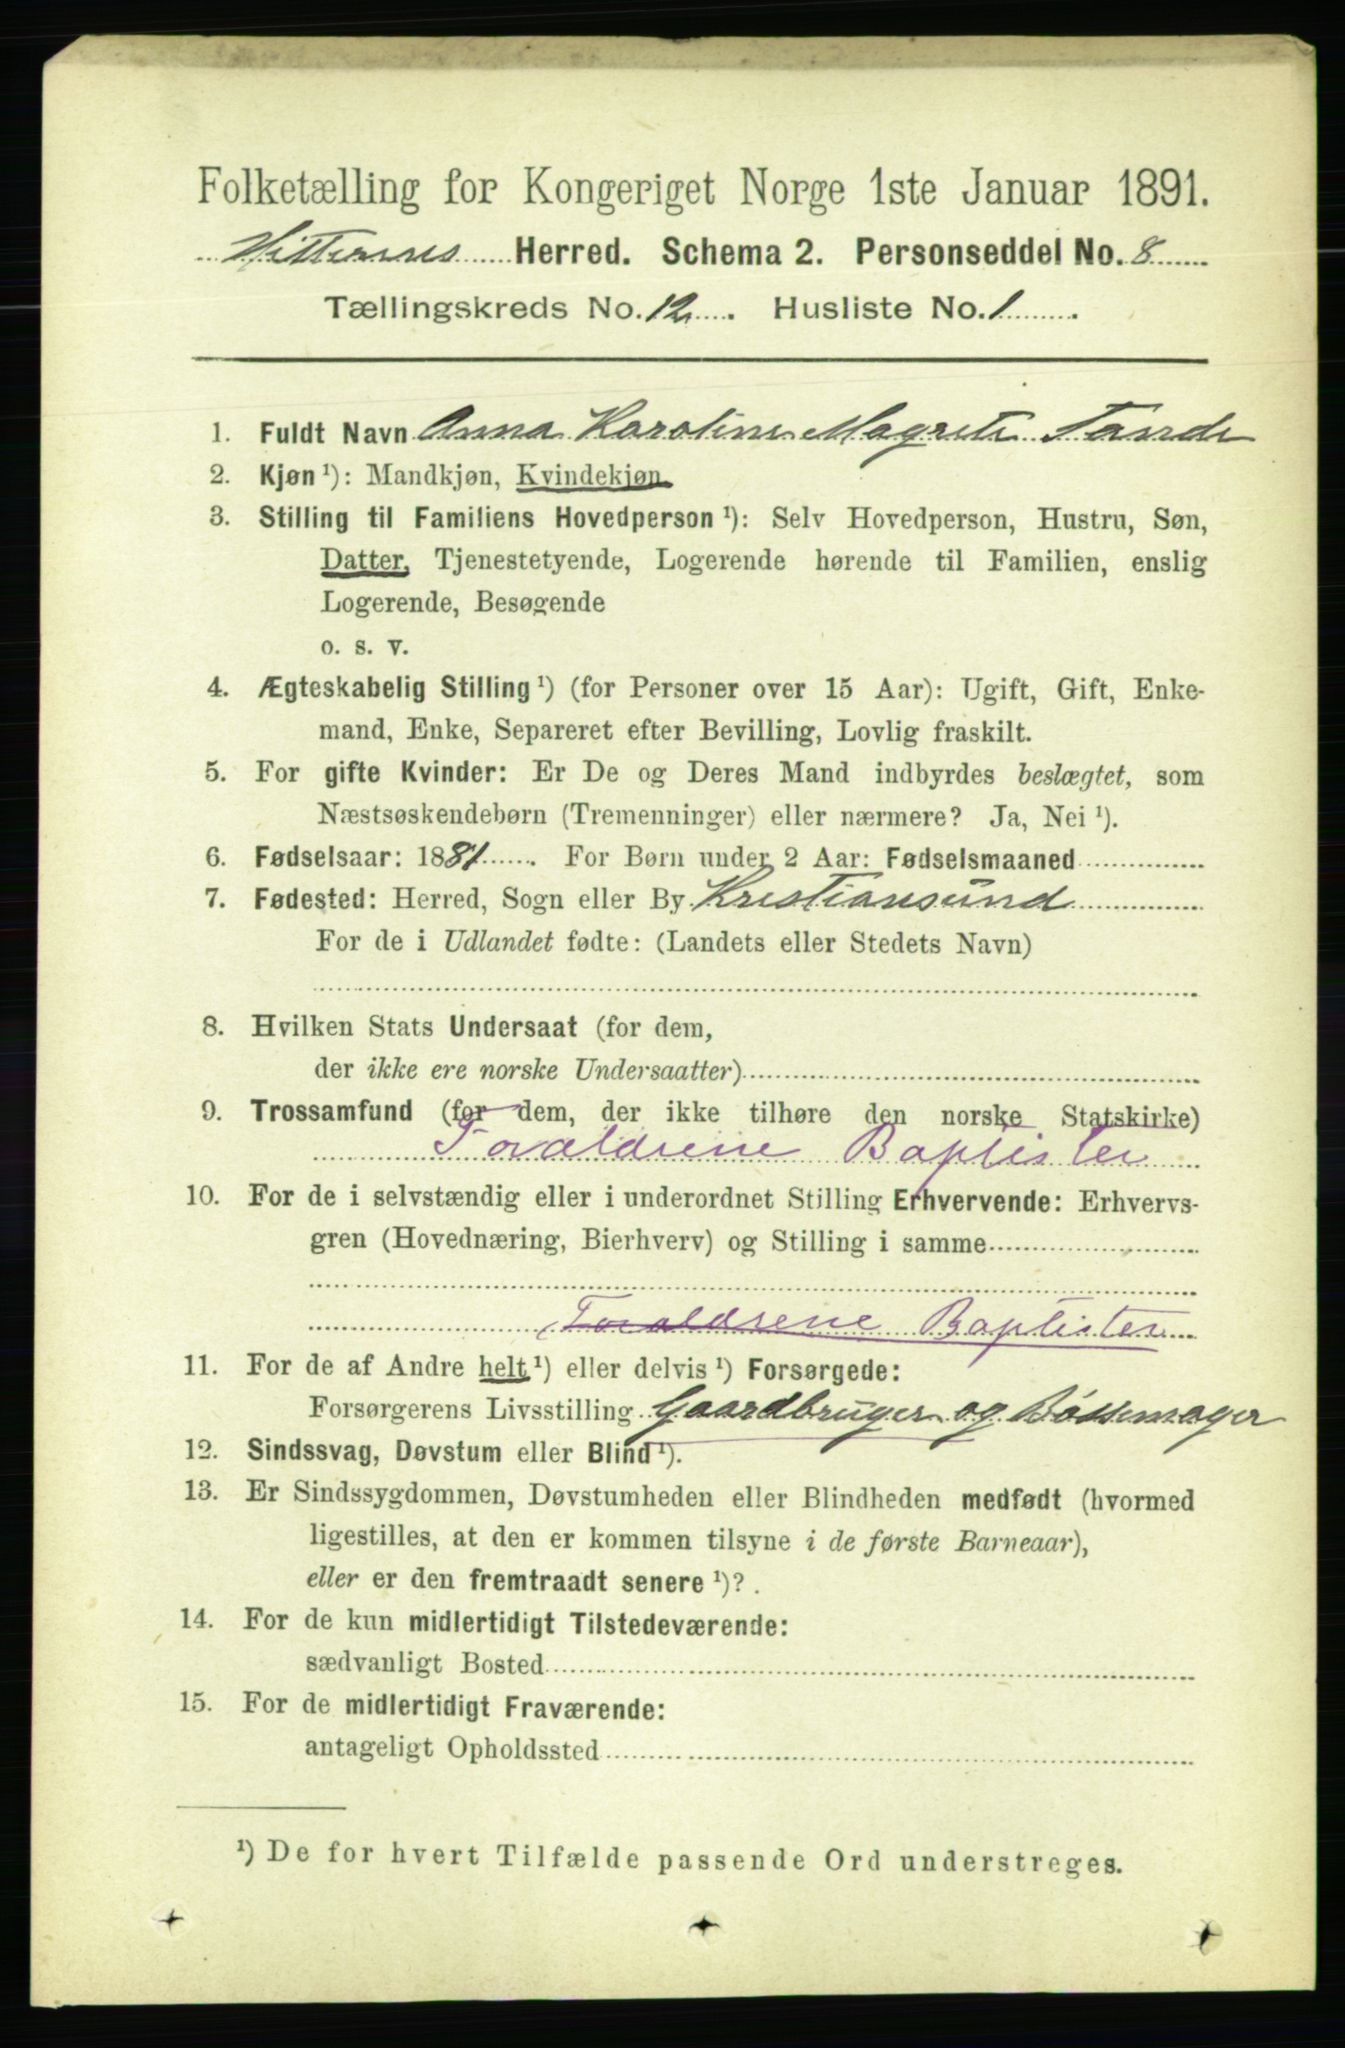 Folketælling for Kongeriget Norge 1ste Januar 1891.
Hitternes Herred. Schema 2. Personseddel No. 8
Tællingskreds No. 12. Husliste No. 1.
1. Fuldt Navn Anna Karoline Magrete Tande
2. Kjøn ¹): Mandkjøn, Kvindekjøn
3. Stilling til Familiens Hovedperson ¹): Selv Hovedperson, Hustru, Søn,
Datter, Tjenestetyende, Logerende hørende til Familien, enslig
Logerende, Besøgende
o. s. v.
4. Ægteskabelig Stilling ¹) (for Personer over 15 Aar): Ugift, Gift, Enke-
mand, Enke, Separeret efter Bevilling, Lovlig fraskilt.
5. For gifte Kvinder: Er De og Deres Mand indbyrdes beslægtet, som
Næstsøskendebørn (Tremenninger) eller nærmere? Ja, Nei ¹).
6. Fødselsaar: 1881. For Børn under 2 Aar: Fødselsmaaned
7. Fødested: Herred, Sogn eller By Kristiansund
For de i Udlandet fødte: (Landets eller Stedets Navn)
8. Hvilken Stats Undersaat (for dem,
der ikke ere norske Undersaatter)
9. Trossamfund (for dem, der ikke tilhøre den norske Statskirke)
Forældrene Baptister
10. For de i selvstændig eller i underordnet Stilling Erhvervende: Erhvervs-
gren (Hovednæring, Bierhverv) og Stilling i samme
Forældrene Baptister
11. For de af Andre helt ¹) eller delvis ¹) Forsørgede:
Forsørgerens Livsstilling Gaardbruger og Bøssemager
12. Sindssvag, Døvstum eller Blind ¹).
13. Er Sindssygdommen, Døvstumheden eller Blindheden medfødt (hvormed
ligestilles, at den er kommen tilsyne i de første Barneaar),
eller er den fremtraadt senere ¹)?.
14. For de kun midlertidigt Tilstedeværende:
sædvanligt Bosted
15. For de midlertidigt Fraværende:
antageligt Opholdssted
¹) De for hvert Tilfælde passende Ord understreges.